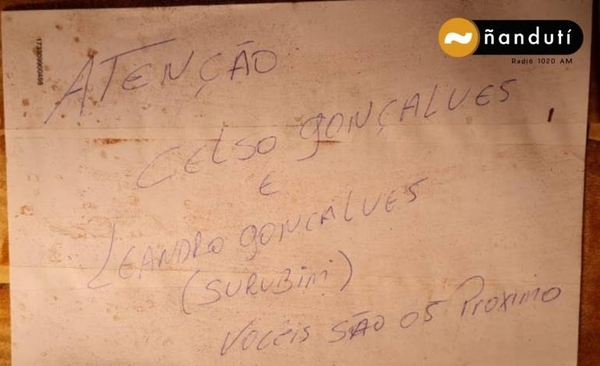 ñandutí
Radio 1020 AM
ATENÇÃO
CELSO GONÇALVES
E
LEANDRO GONCALVES
(SURUBIM)
VOCÊIS SÃO OS PROXIMO